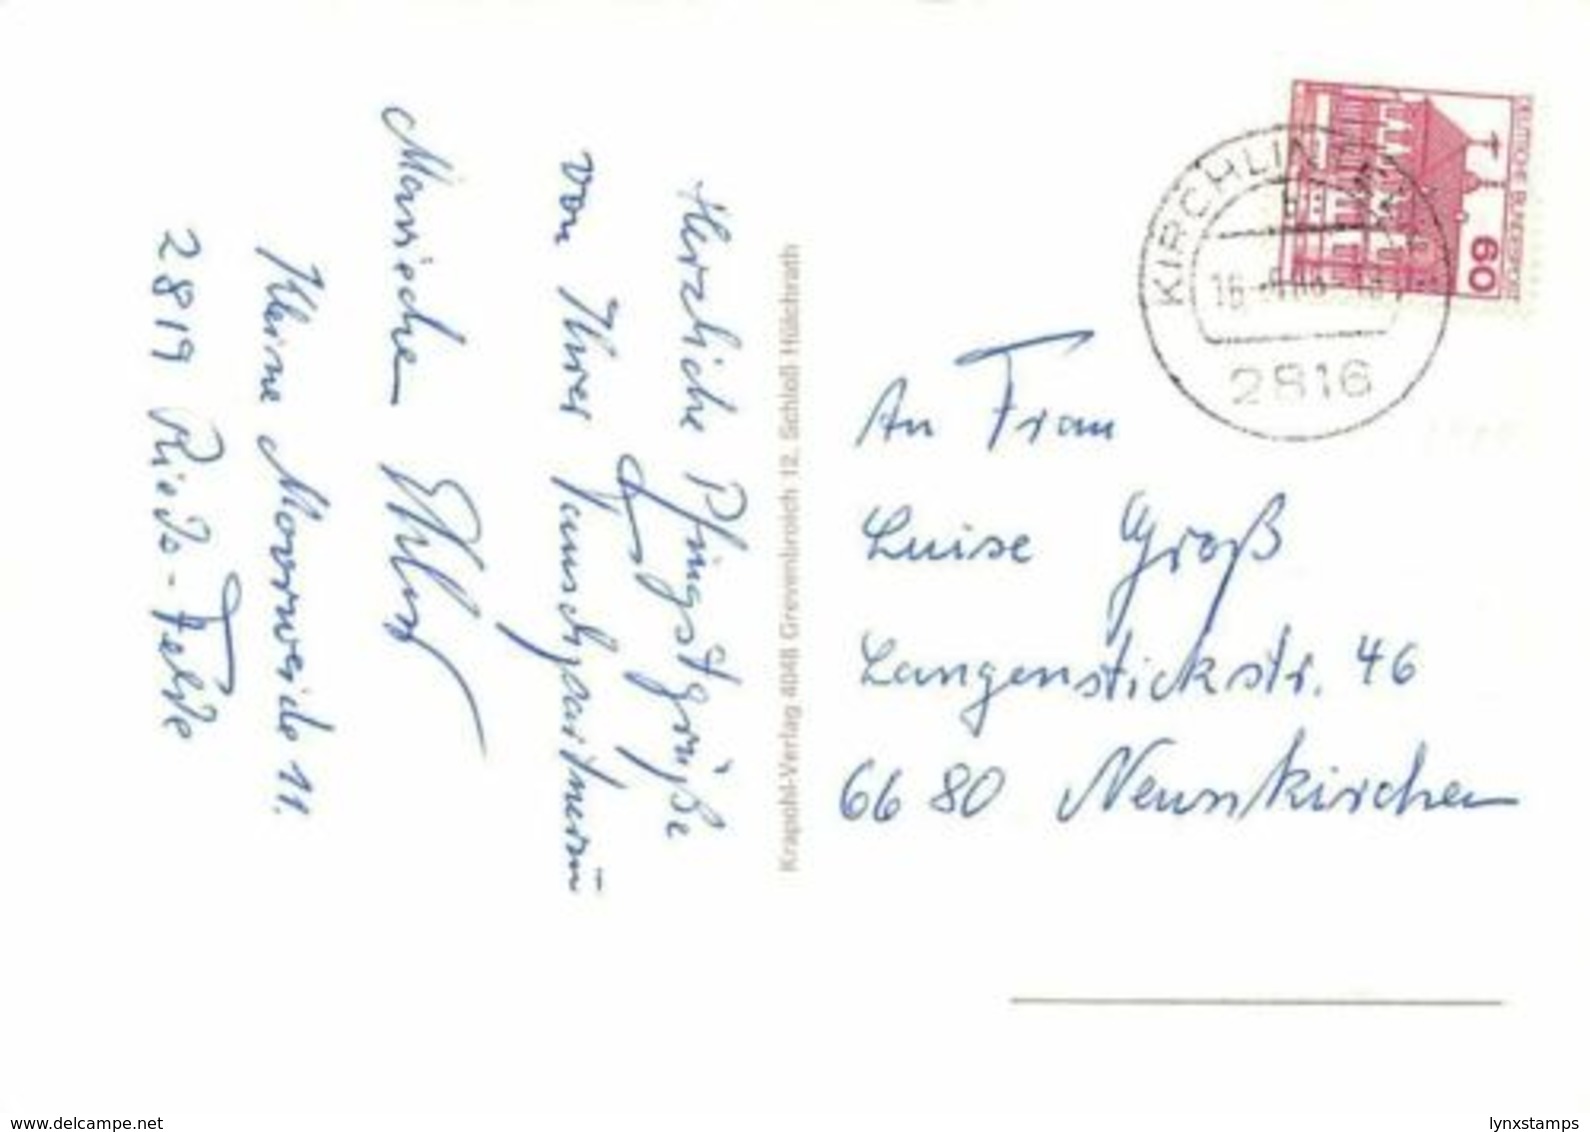 Herzliche Pfingstgrüße
von Ihrer Tauschpartnerin
Kleine Moorweide 11.
2819 Riede-Felde
Krapohl-Verlag 4048 Grevenbroich 12, Schloß Hülchrath
DEUTSCHE BUNDESPOST
60
KIRCHLINT
2816
An Frau
Luise Groß
Langenstickstr. 46
6680 Neunkirchen
www.delcampe.net
lynxstamps